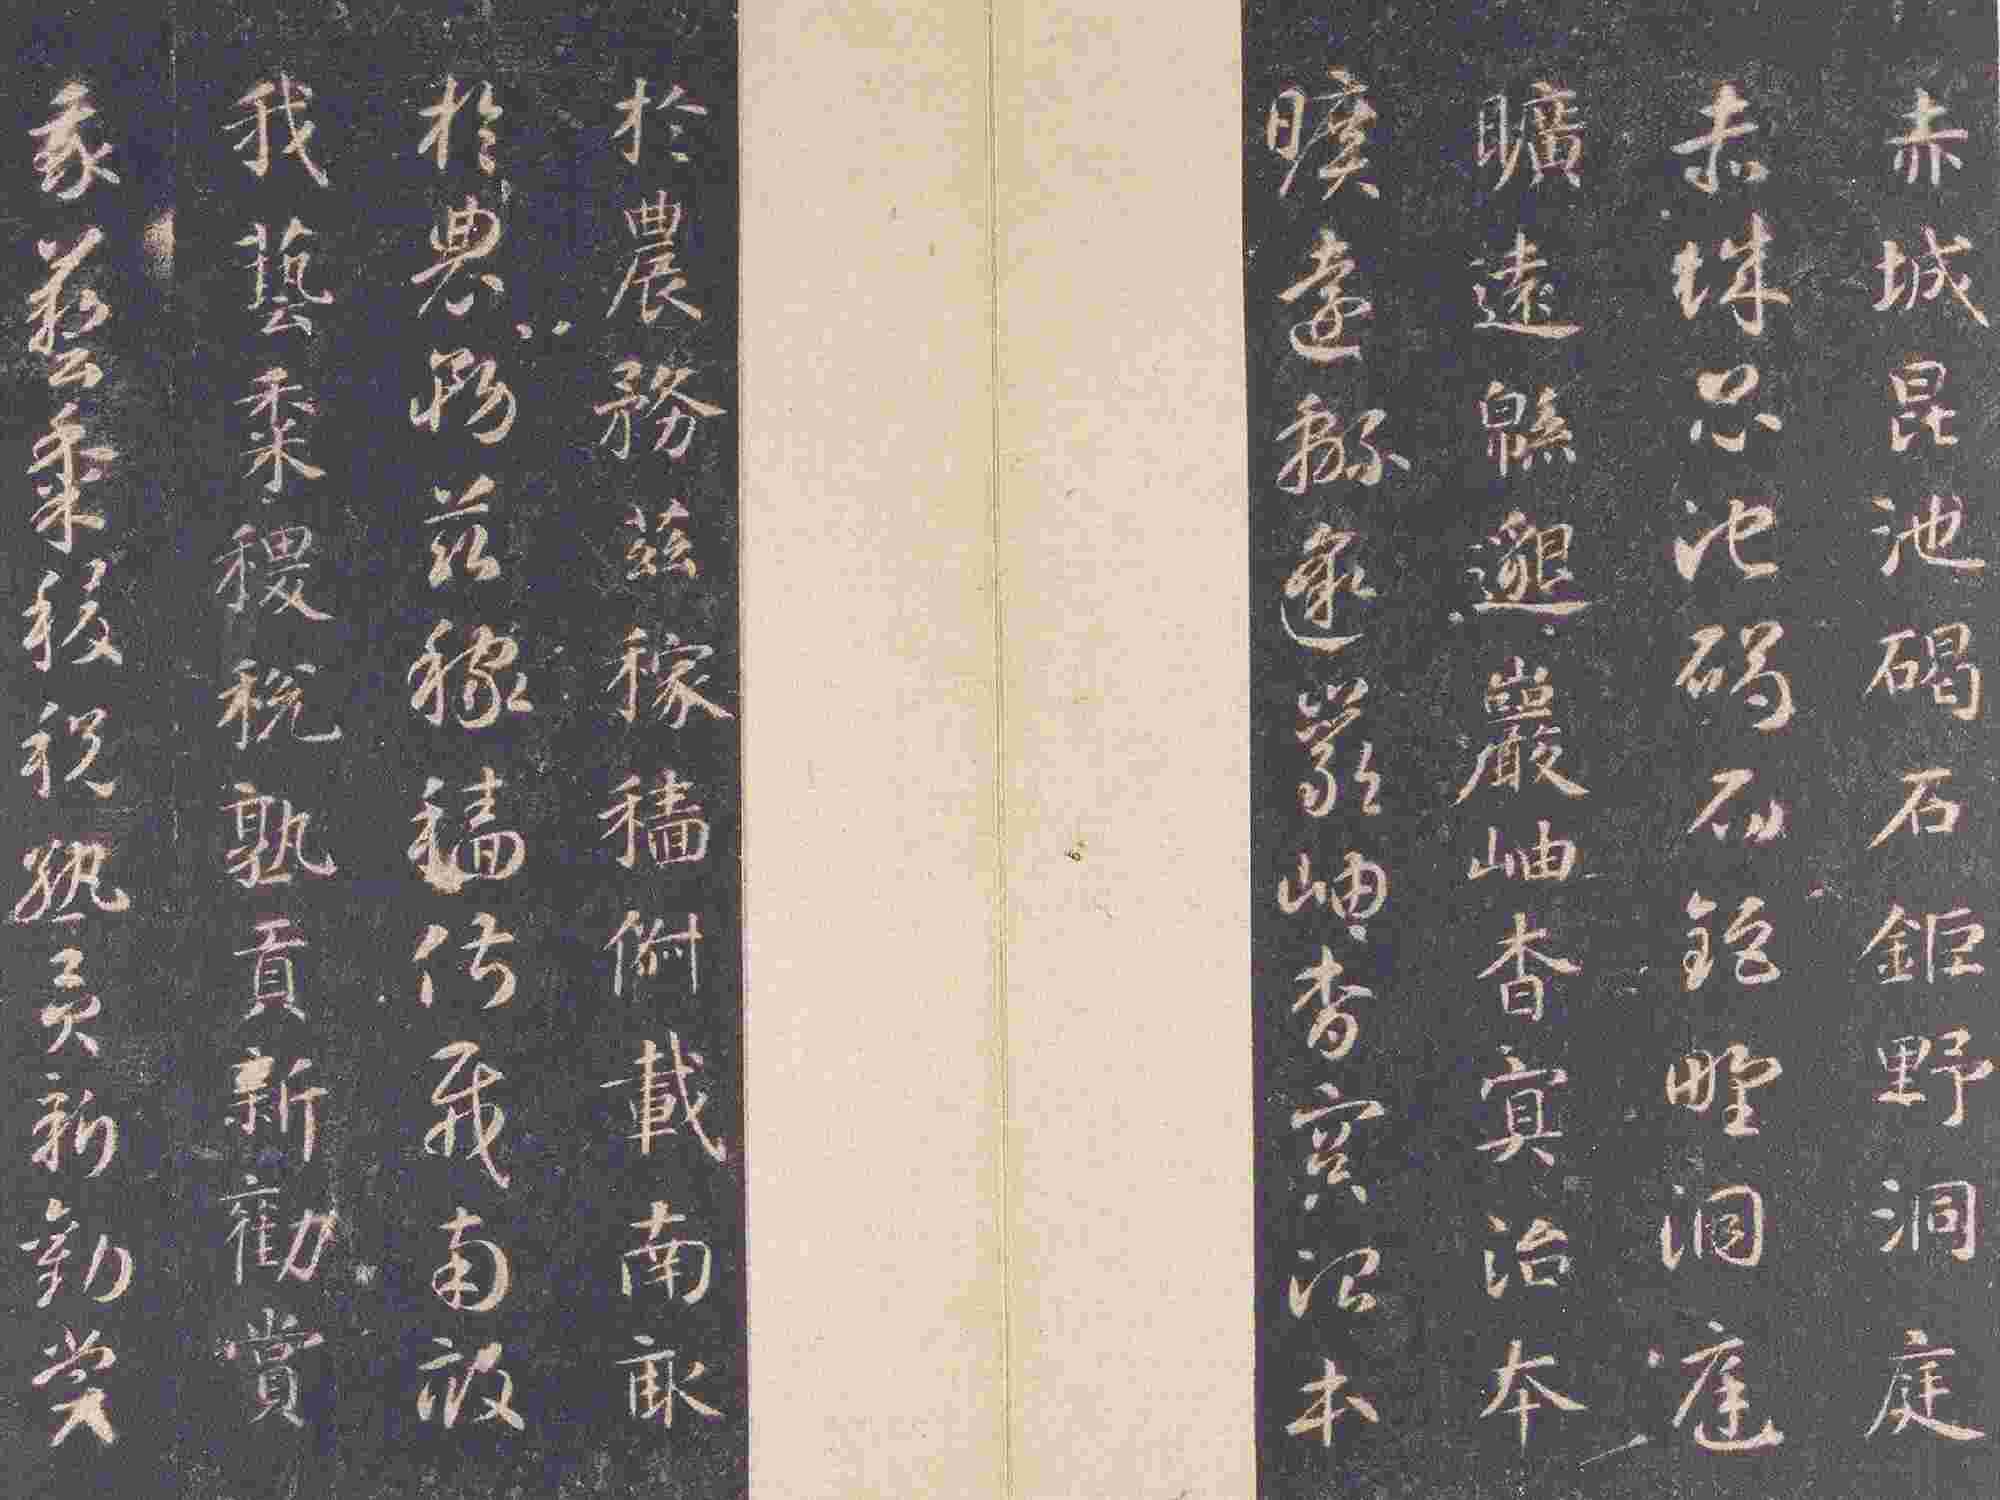 赤城昆池碣石鉅野洞庭
赤城昆池碣石鉅野洞庭
曠遠緜邈巖岫杳冥治本
曠遠緜邈巖岫杳冥治本
於農務茲稼穡俶載南畝
於農務茲稼穡俶載南畝
我藝黍稷稅孰貢新勸賞
我藝黍稷稅熟貢新勸賞